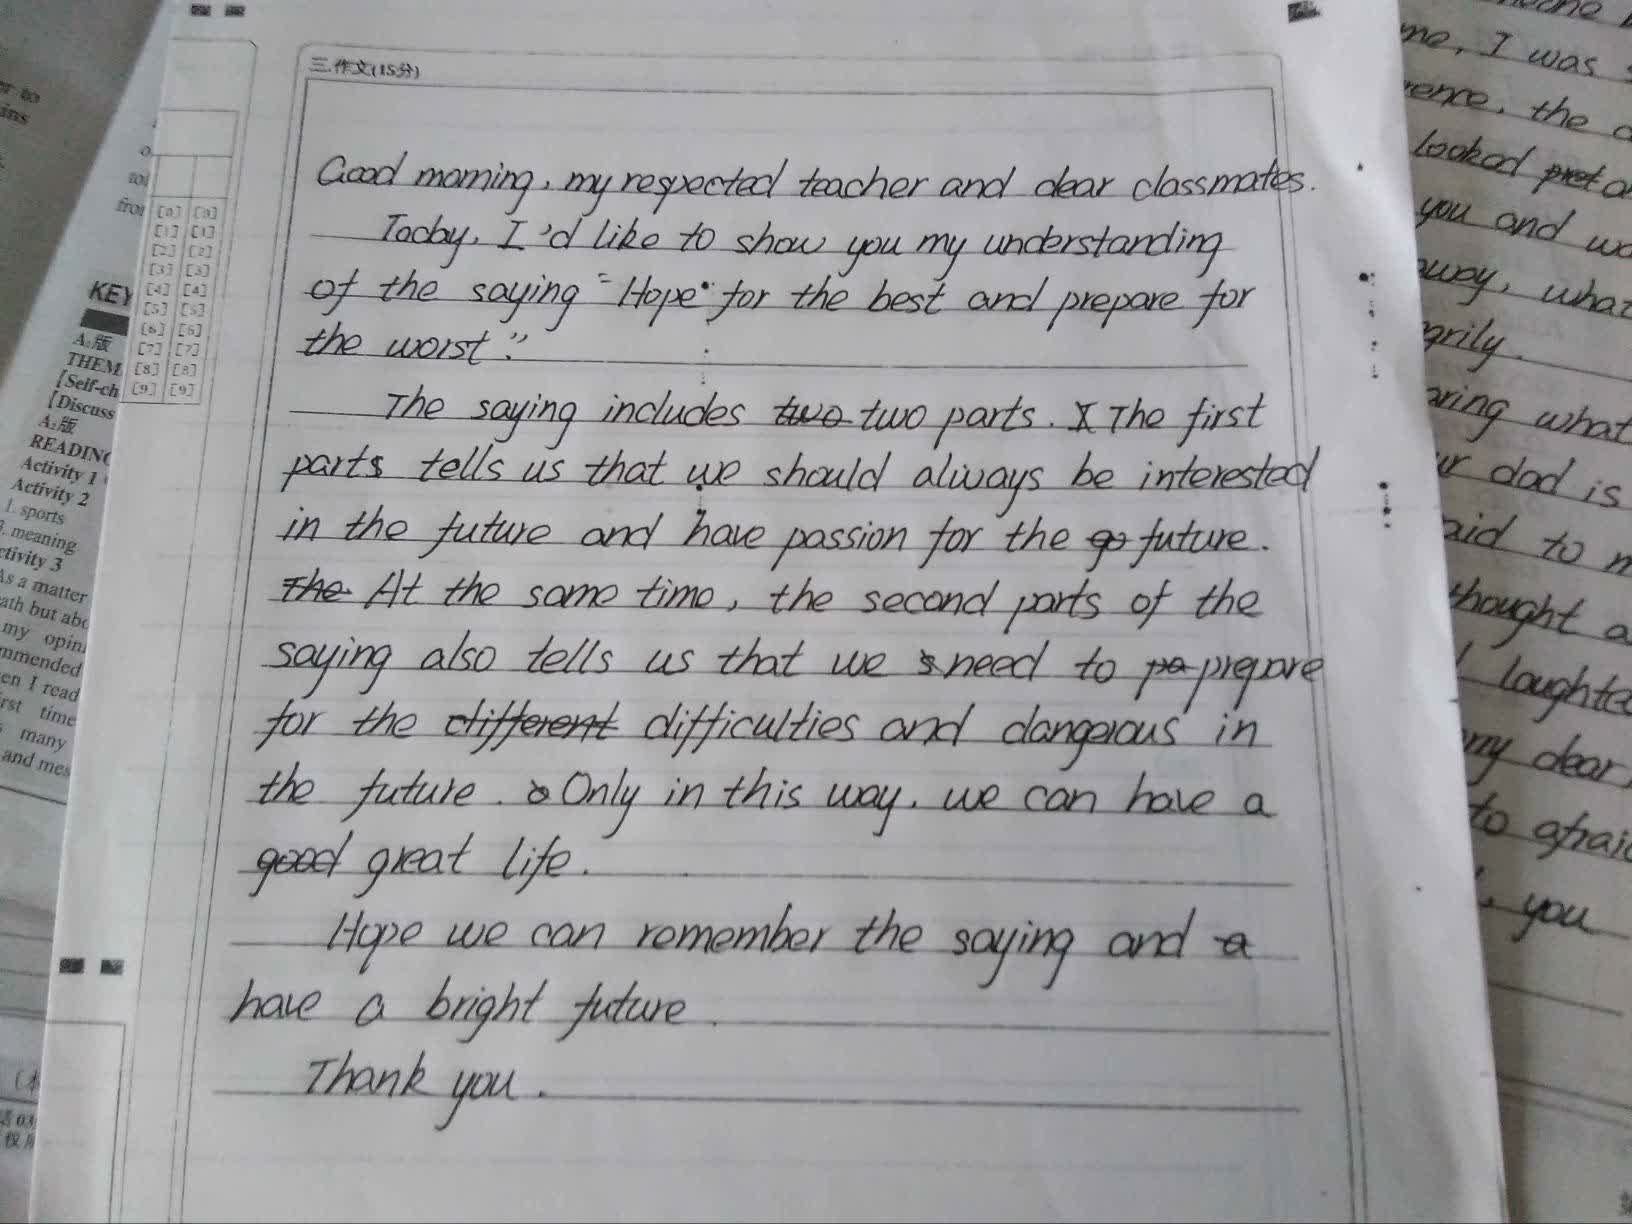 三.作文(15分)
Good morning, my respected teacher and dear classmates.
Today, I'd like to show you my understanding
of the saying "Hope for the best and prepare for
the worst".
The saying includes two two parts. The first
parts tells us that we should always be interested
in the future and have passion for the go future.
The At the same time, the second parts of the
saying also tells us that we need to pa prepare
for the different difficulties and dangerous in
the future. Only in this way, we can have a
good great life.
Hope we can remember the saying and a
have a bright future.
Thank you.
[0] [0]
[1] [1]
[2] [2]
[3] [3]
[4] [4]
[5] [5]
[6] [6]
[7] [7]
[8] [8]
[9] [9]
KEY
A₁版
THEM
[Self-ch
[Discuss
A₂版
READING
Activity 1
Activity 2
1. sports
3. meaning
ctivity 3
As a matter
ath but abo
my opin
mmended
en I read
irst time
many
and mes
me, I was
rence, the
looked pret
you and wa
away, what
grily.
aring what
ur dad is
aid to m
thought a
laughted
my dear,
to afraid
you